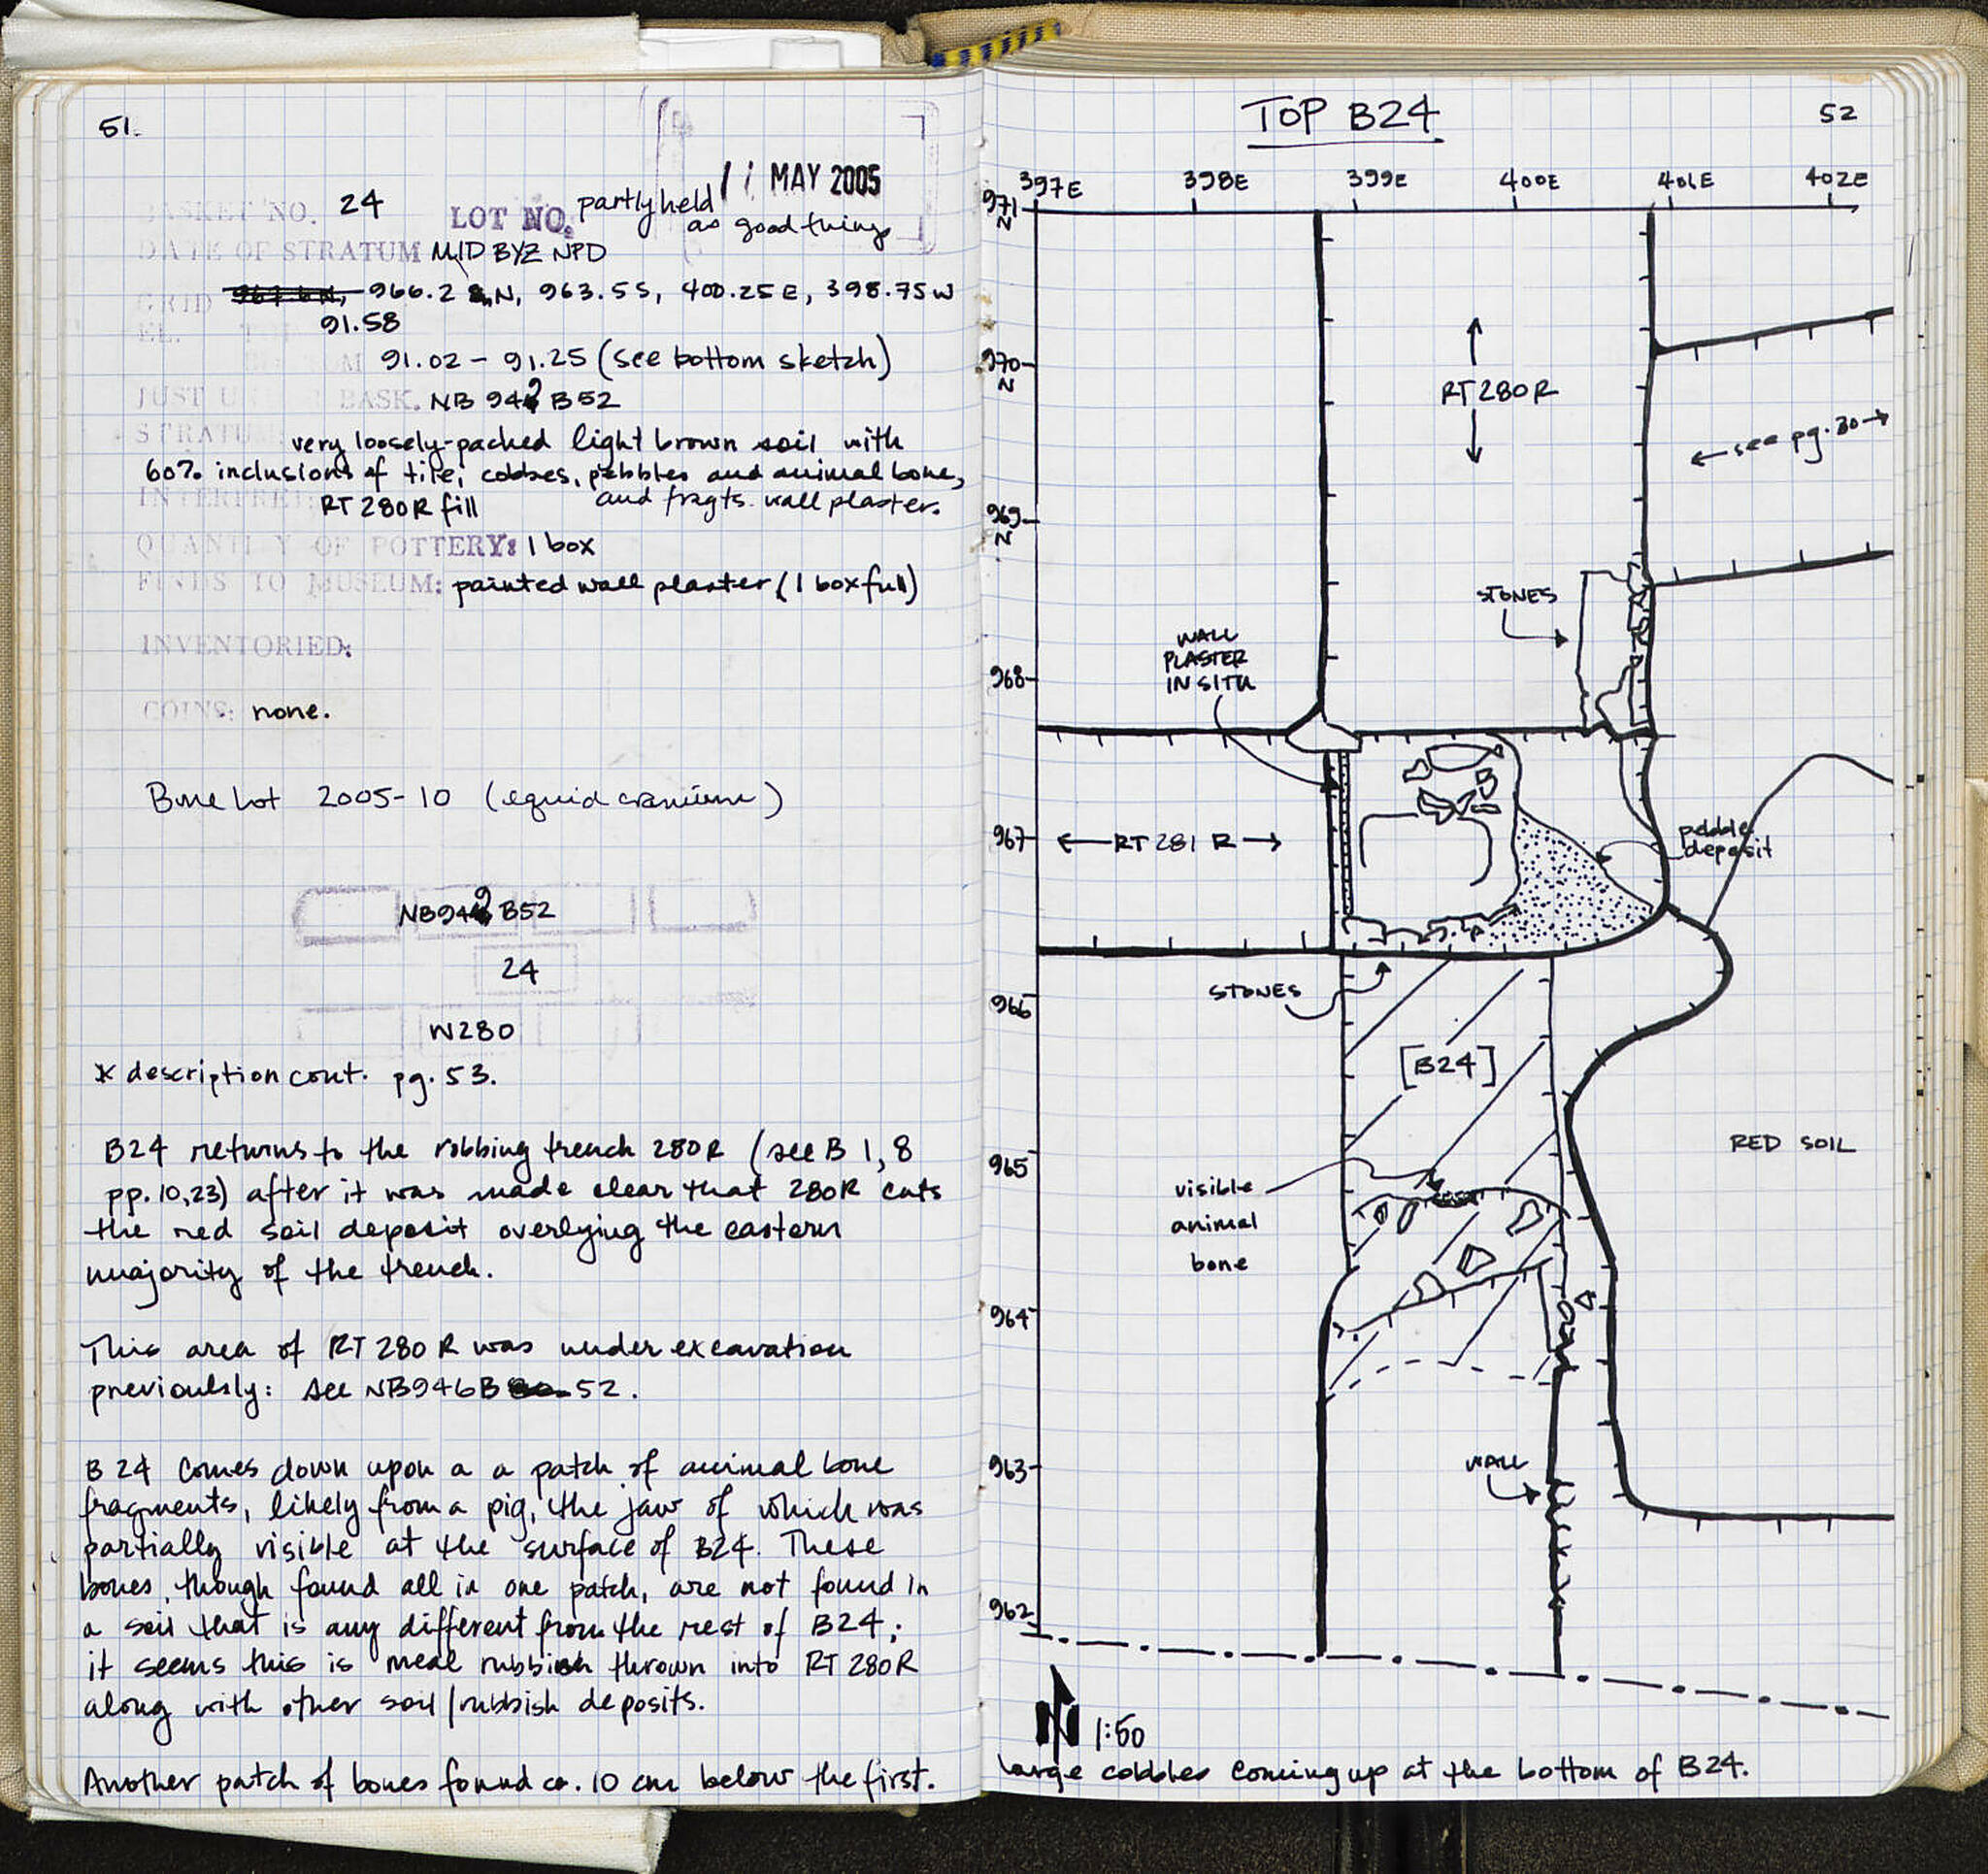 51.
11 MAY 2005
BASKET NO. 24 LOT NO. partly held
as good things
DATE OF STRATUM MID BYZ NPD
GRID 966.2 N, 963.5 S, 400.25 E, 398.75 W
EL. 91.58
91.02 - 91.25 (see bottom sketch)
JUST U BASK. NB 949 B52
STRATU very loosely-packed light brown soil with
60% inclusions of tile, cobbles, pebbles and animal bone,
and fragts. wall plaster.
INTERPRET: RT 280R fill
QUANTITY OF POTTERY: 1 box
FINDS TO MUSEUM: painted wall plaster (1 box full)
INVENTORIED:
COINS: none.
Bone Lot 2005-10 (equid cranium)
NB949 B52
24
W280
* description cont. pg. 53.
B24 returns to the robbing trench 280R (see B 1, 8
pp. 10, 23) after it was made clear that 280R cuts
the red soil deposit overlying the eastern
majority of the trench.
This area of RT 280 R was under excavation
previously: see NB946B 52.
B 24 comes down upon a a patch of animal bone
fragments, likely from a pig, the jaw of which was
partially visible at the surface of B24. These
bones, though found all in one patch, are not found in
a soil that is any different from the rest of B24;
it seems this is meal rubbish thrown into RT 280R
along with other soil/rubbish deposits.
Another patch of bones found ca. 10 cm below the first.
TOP B24
52
397E 398E 399E 400E 401E 402E
971
N
970
N
RT 280R
← see pg. 30 →
969
N
STONES
WALL
PLASTER
IN SITU
968
967
← RT 281 R →
pebble
deposit
966
STONES
[B24]
RED SOIL
965
visible
animal
bone
964
963
WALL
962
N 1:50
large cobbles coming up at the bottom of B24.